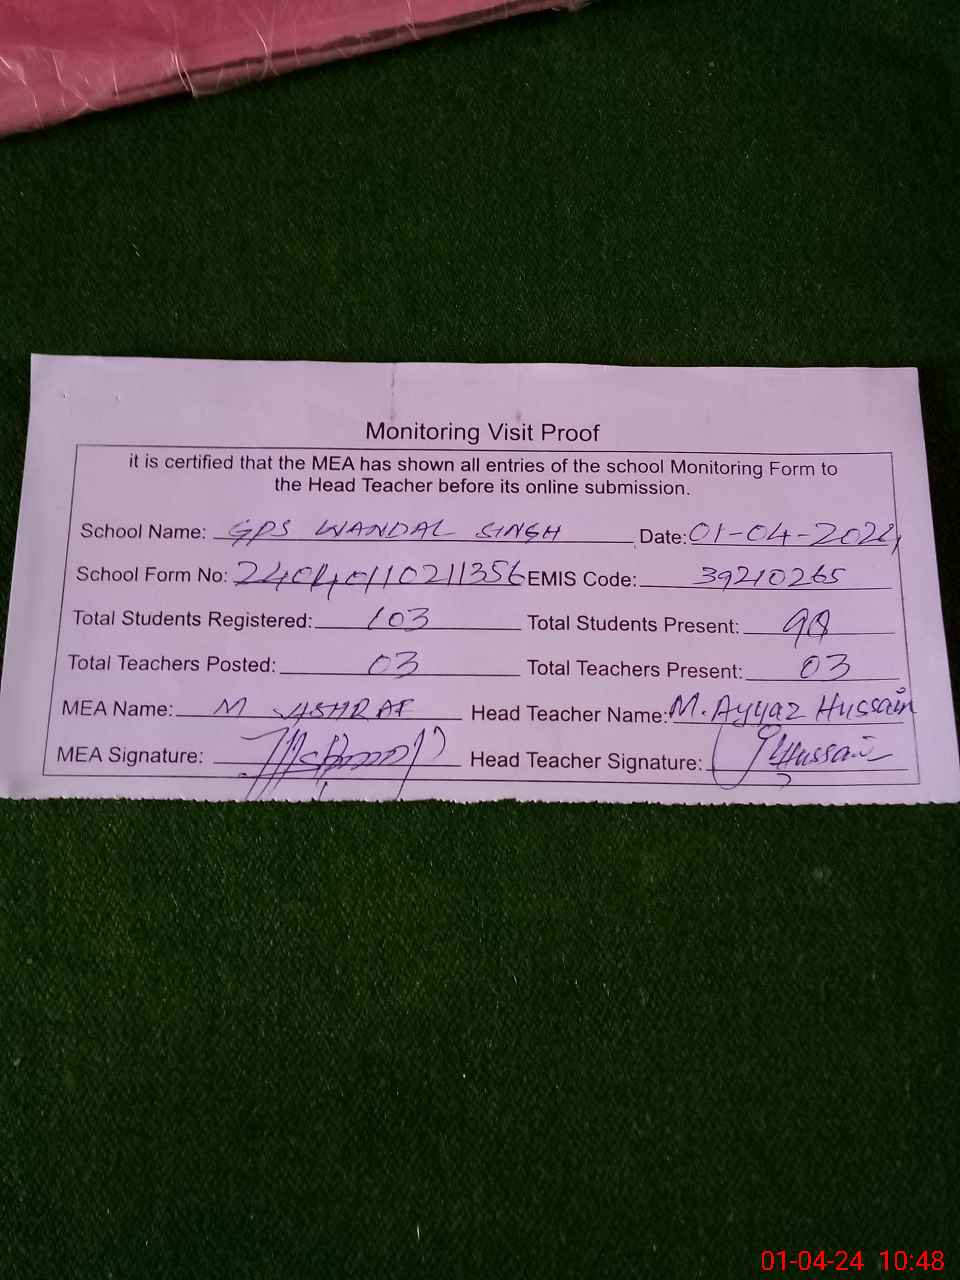 Monitoring Visit Proof
it is certified that the MEA has shown all entries of the school Monitoring Form to
the Head Teacher before its online submission.
School Name: GPS WANDAL SINGH Date: 01-04-2024
School Form No: 2404040110211356 EMIS Code: 39210265
Total Students Registered: 103 Total Students Present:
Total Teachers Posted: 03 Total Teachers Present: 03
MEA Name: M ASHRAF Head Teacher Name: M. Ayyaz Hussain
MEA Signature: Head Teacher Signature: Hussain
01-04-24 10:48